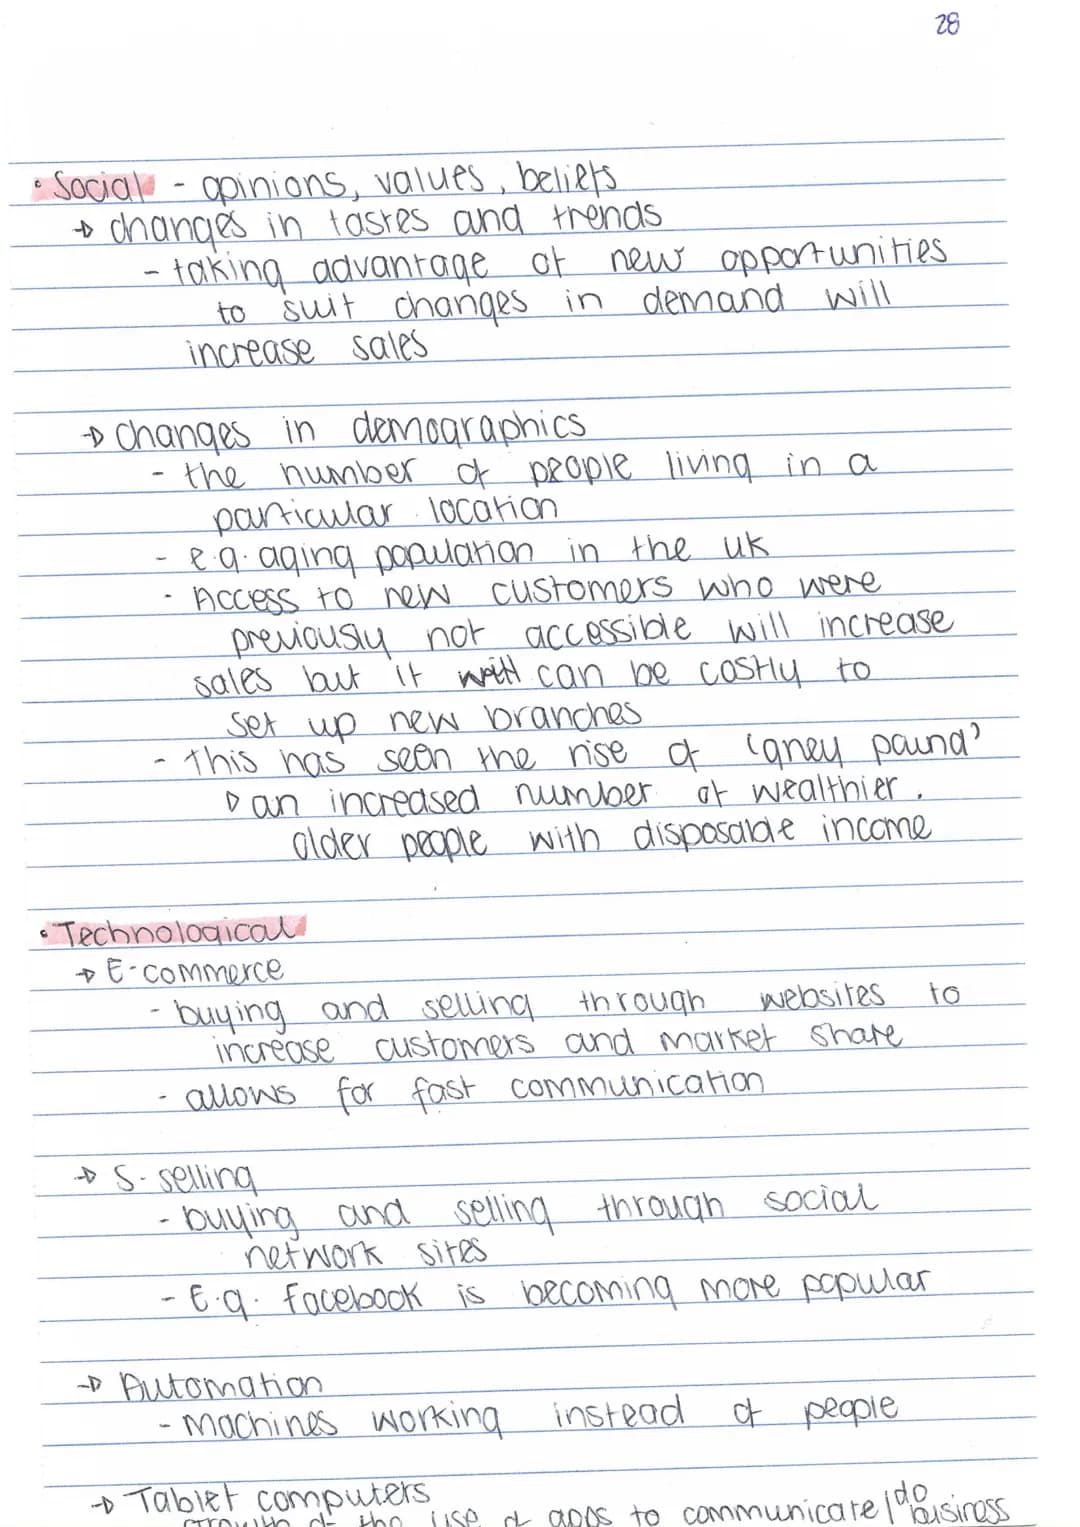 28
• Social - opinions, values, beliefs
→ changes in tastes and trends
- taking advantage of new opportunities
to suit changes in demand will
increase sales
→ changes in demographics
- the number of people living in a
particular location
- e.g. aging population in the uk
- Access to new customers who were
previously not accessible will increase
sales but it can be costly to
set up new branches
- this has seen the rise of 'grey pound'
→ an increased number of wealthier
older people with disposable income
• Technological
→ E-commerce
- buying and selling through websites to
increase customers and market share
- allows for fast communication
→ S-selling
- buying and selling through social
network sites
- E.g. facebook is becoming more popular
→ Automation
- machines working instead of people
→ Tablet computers
growth of the use of apps to communicate / do business